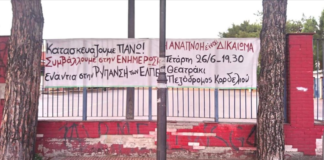 Κατασκευάζουμε ΠΑΝΩ!
Συμβάλλουμε στην ΕΝΗΜΕΡΩΣΗ
Ενάντια στην ΡΥΠΑΝΣΗ των ΕΛΠΕ
Η ΑΝΑΠΝΟΗ είναι ΔΙΚΑΙΩΜΑ
Τετάρτη 26/6 - 19.30
Θεατράκι
Πεζόδρομος Κορδελιού